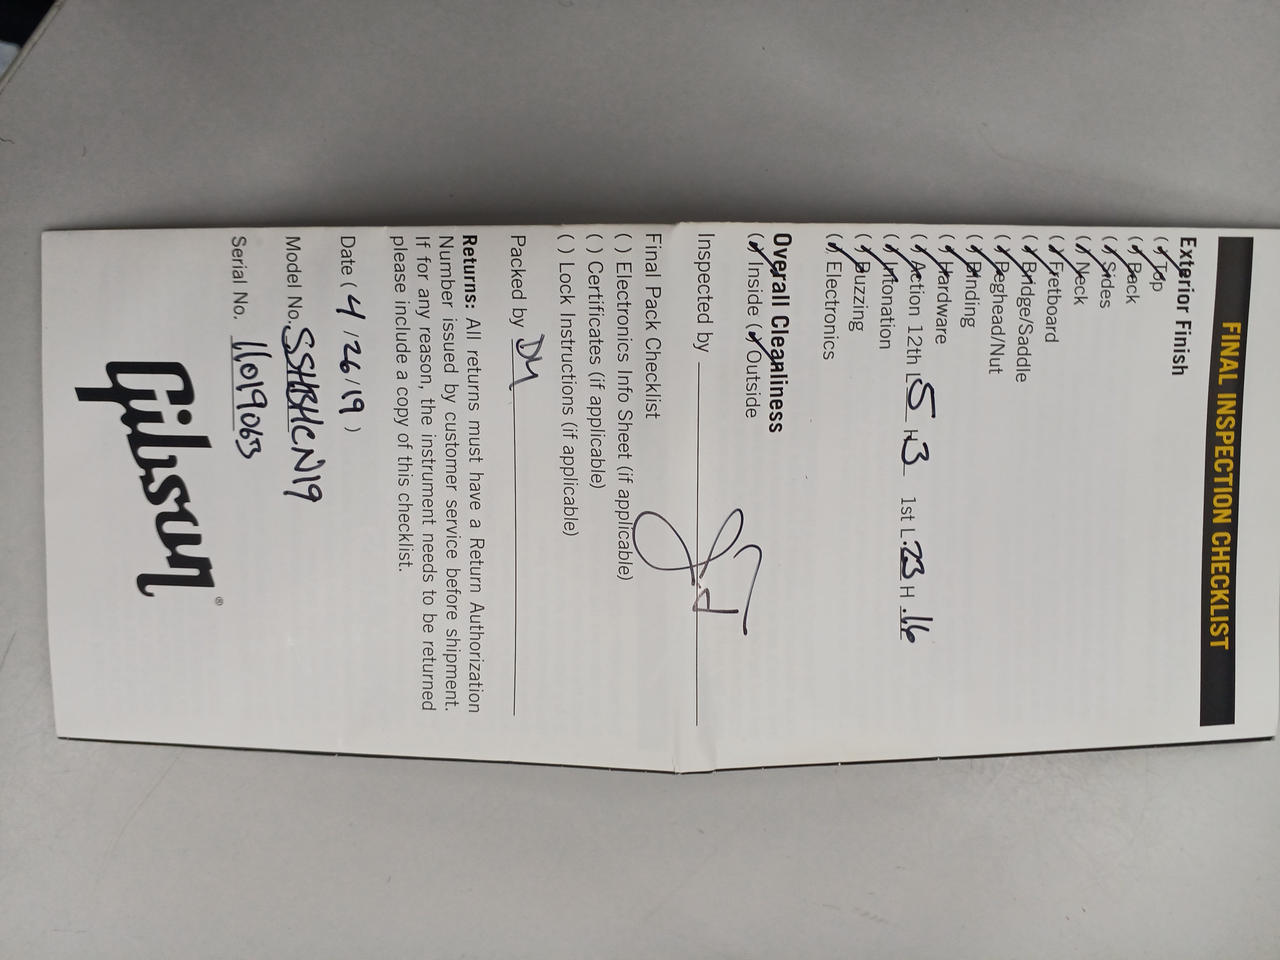 FINAL INSPECTION CHECKLIST
Exterior Finish
(✓) Top
(✓) Back
(✓) Sides
(✓) Neck
(✓) Fretboard
(✓) Bridge/Saddle
(✓) Peghead/Nut
(✓) Binding
(✓) Hardware
(✓) Action 12th L 5 H 3 1st L .23 H .16
(✓) Intonation
(✓) Buzzing
(✓) Electronics
Overall Cleanliness
(✓) Inside (✓) Outside
Inspected by
Final Pack Checklist
( ) Electronics Info Sheet (if applicable)
( ) Certificates (if applicable)
( ) Lock Instructions (if applicable)
Packed by DM
Returns: All returns must have a Return Authorization
Number issued by customer service before shipment.
If for any reason, the instrument needs to be returned
please include a copy of this checklist.
Date (4/26/19)
Model No. SSHBHCN19
Serial No. 11019063
Gibson®